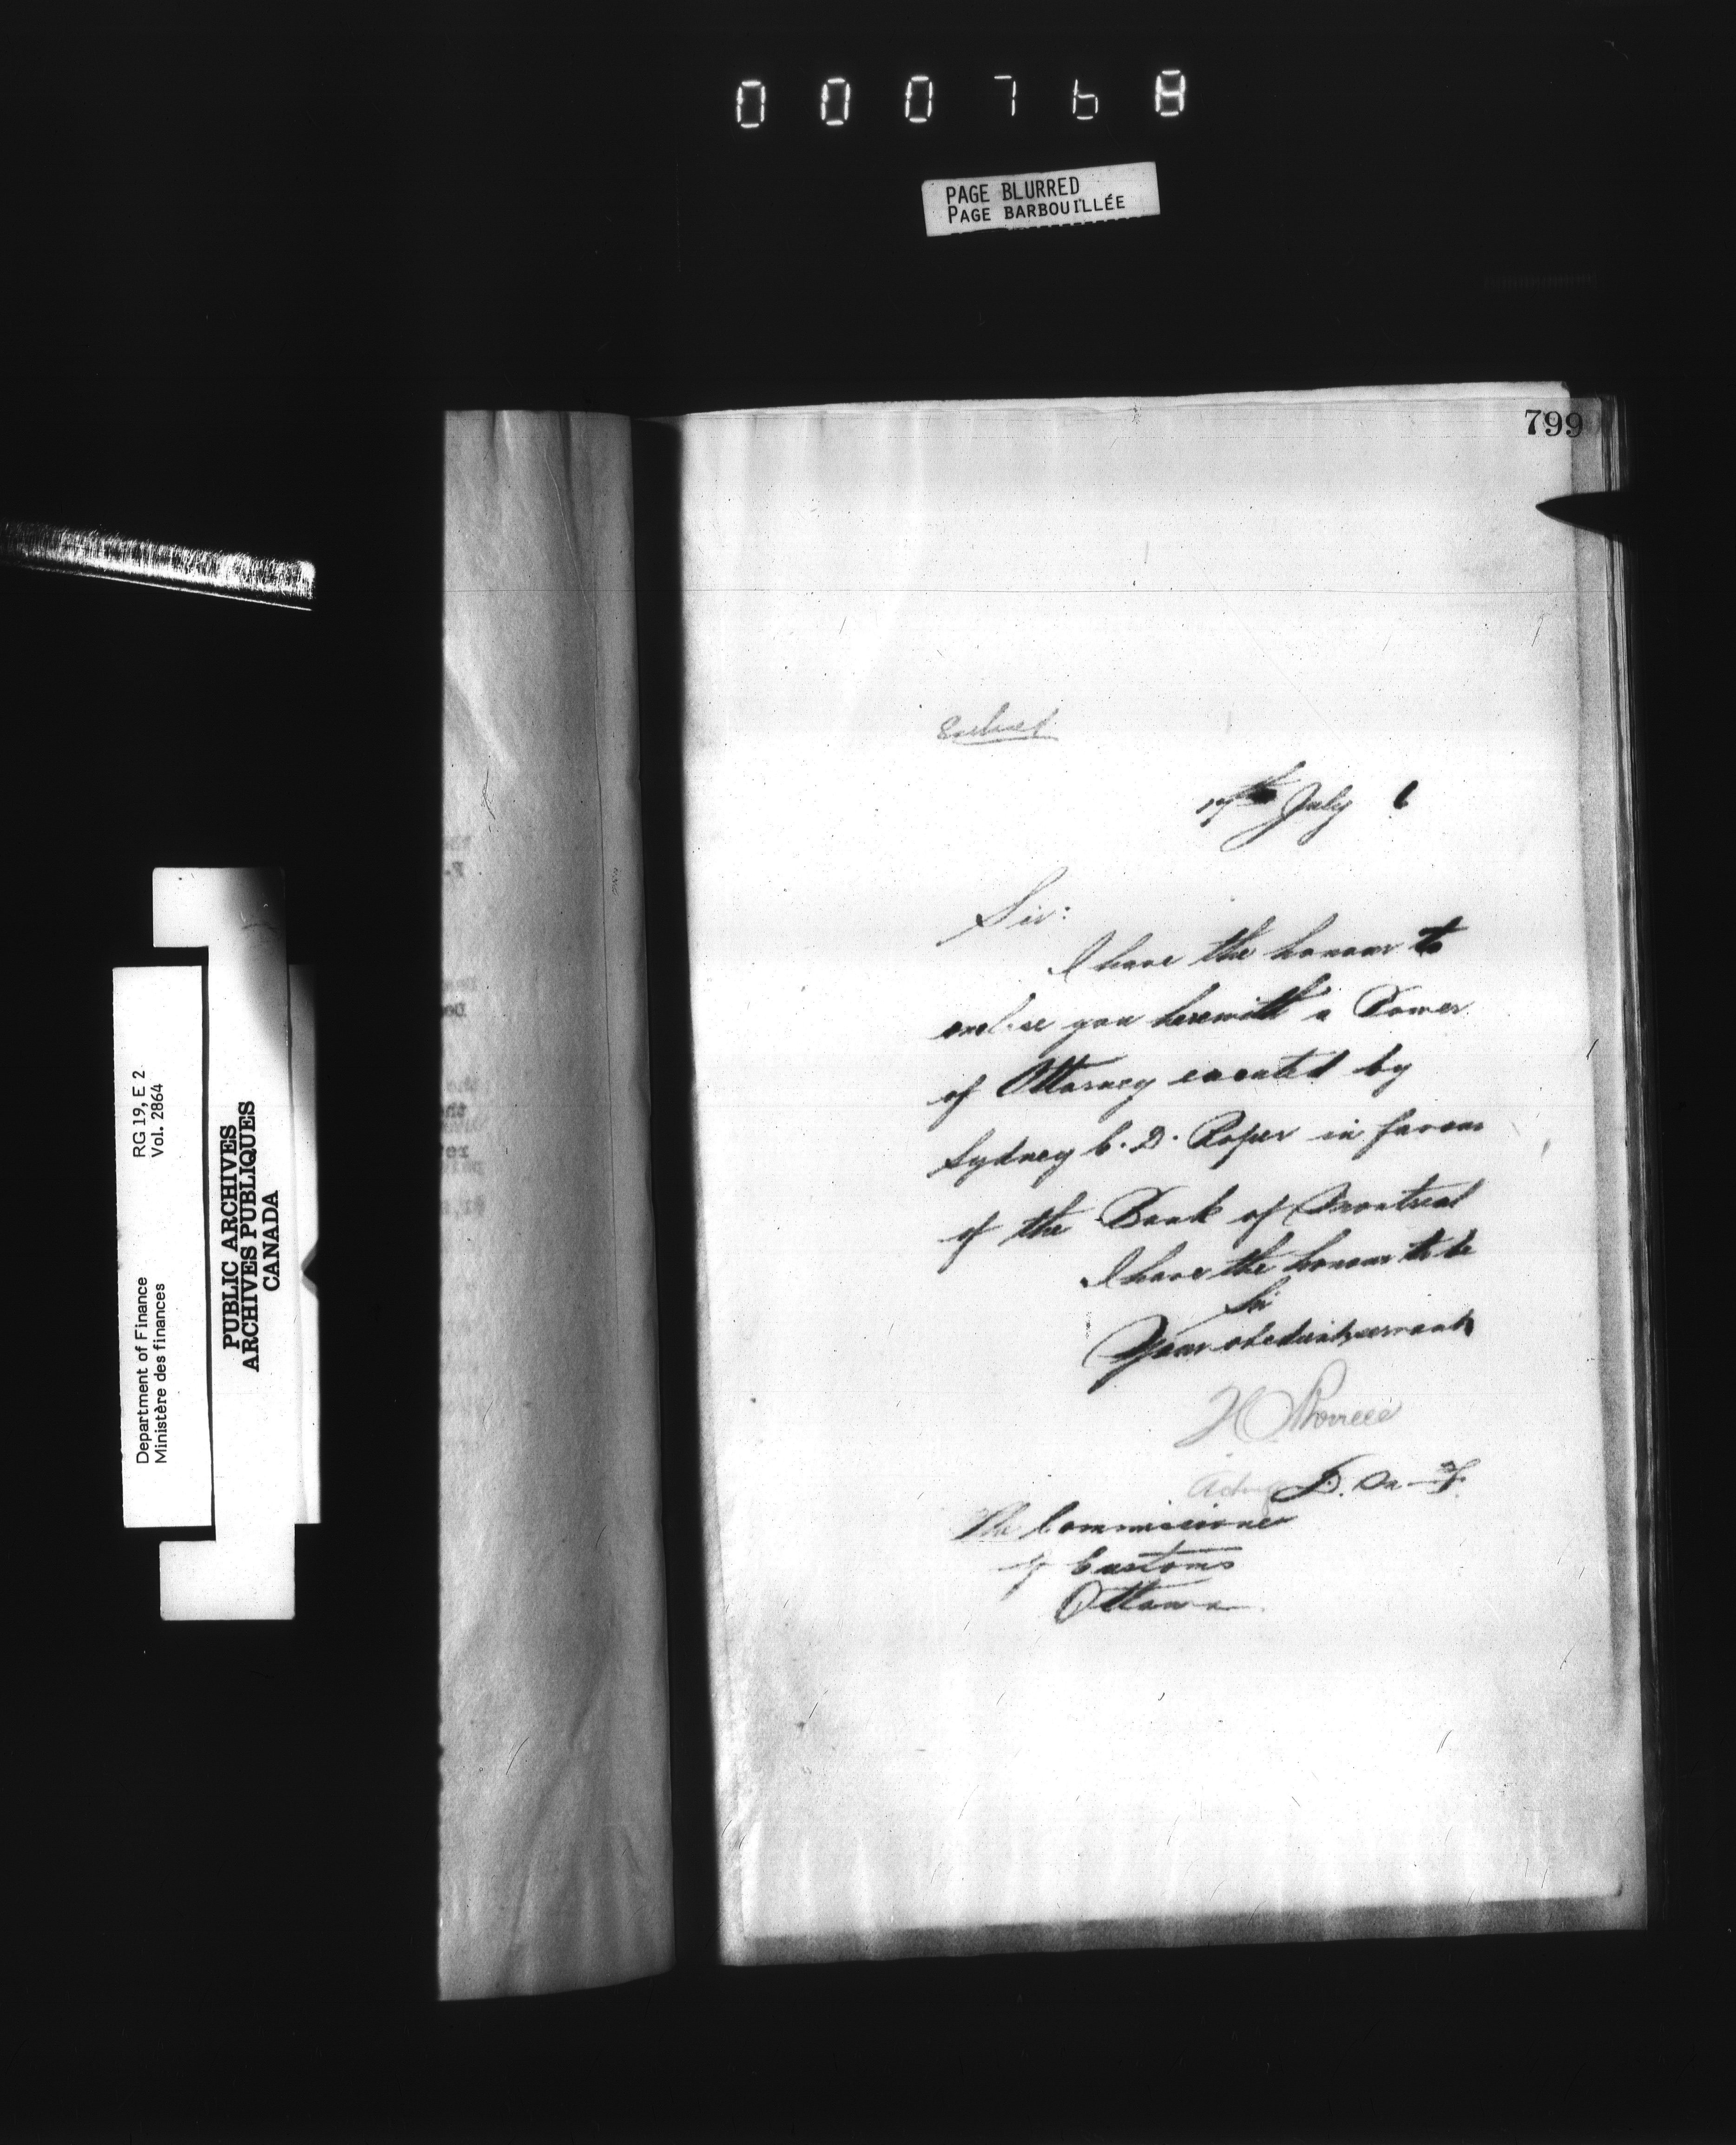 000768
PAGE BLURRED
PAGE BARBOUILLÉE
799
17th July 6
Sir:
I have the honour to
enclose you herewith a Power
of Attorney executed by
Sydney C. D. Roper in favour
of the Bank of Montreal
I have the honour to be
Sir
Your obedient servant
Acting D. M. F.
The Commissioner
of Customs
Ottawa
Department of Finance RG 19, E 2
Ministère des finances Vol. 2864
PUBLIC ARCHIVES
ARCHIVES PUBLIQUES
CANADA